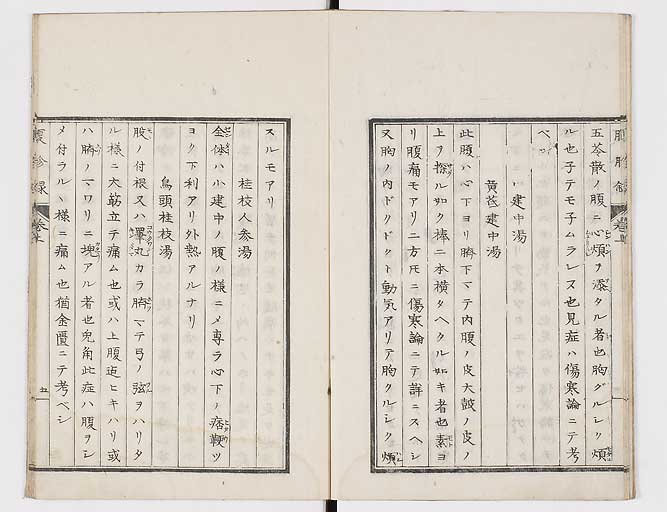 五苓散ノ腹ニ心煩ヲ添タル者也胸グルシク煩
ル也子テモ子ムラレヌ也見症ハ傷寒論ニテ考
ベシ
小建中湯
黄芪建中湯
此腹ハ心下ヨリ臍下マテ内腹ノ皮大鼓ノ皮ノ
上ヲ探ル如ク棒ニ本横タヘタル如キ者也素ヨ
リ腹痛モアリ二方圧ニ傷寒論ニテ詳ニスヘシ
又胸ノ内ドクドクト動気アリテ胸クルシク煩
スルモアリ
桂枝人参湯
全体ハ小建中ノ腹ノ様ニメ専ラ心下ノ痞鞕ツ
ヨク下利アリ外熱アルナリ
烏頭桂枝湯
股ノ付根又ハ睾丸カラ臍マテ弓ノ弦ヲハリタ
ル様ニ大筋立テ痛ム也或ハ上腹迄ヒキハリ或
ハ臍ノマワリニ塊アル者也兎角此症ハ腹ヲシ
メ付ラルヽ様ニ痛ム也猶金匱ニテ考ベシ
腹診録
巻上
五